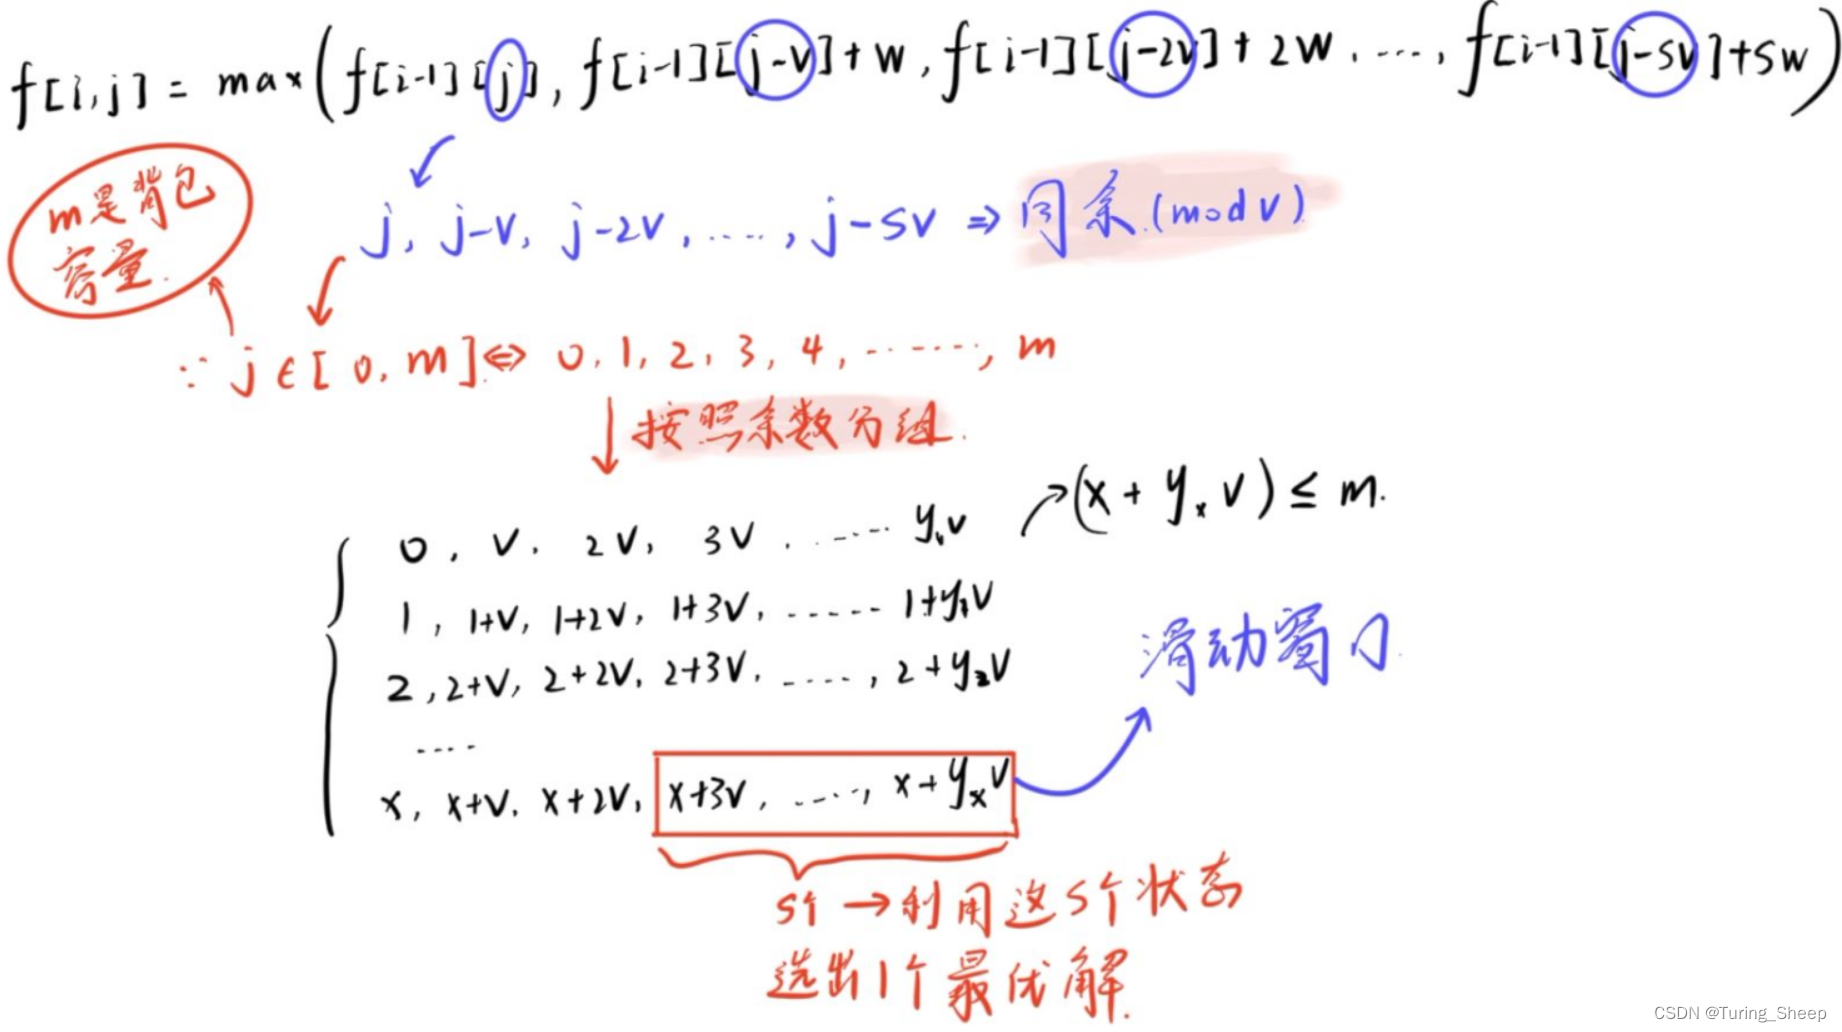 f[i,j] = max(f[i-1][j], f[i-1][j-v]+w, f[i-1][j-2v]+2w, ...., f[i-1][j-sv]+sw)
m是背包
容量.
j, j-v, j-2v, ....., j-sv ⇒ 同余.(mod v)
∵ j∈[0, m] ⇔ 0, 1, 2, 3, 4, ......., m
按照余数分组.
(x+yₓv) ≤ m.
0, v, 2v, 3v, ...... y₀v
1, 1+v, 1+2v, 1+3v, ...... 1+y₁v
2, 2+v, 2+2v, 2+3v, ....., 2+y₂v
滑动窗口
....
x, x+v, x+2v, x+3v, ....., x+yₓv
s个 → 利用这s个状态
选出1个最优解.
CSDN @Turing_Sheep